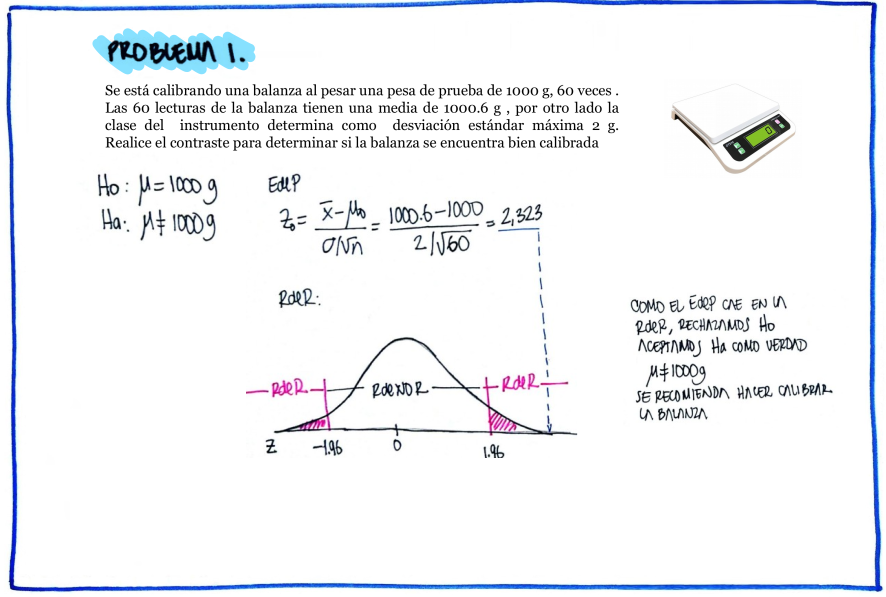 PROBLEMA 1.
Se está calibrando una balanza al pesar una pesa de prueba de 1000 g, 60 veces .
Las 60 lecturas de la balanza tienen una media de 1000.6 g , por otro lado la
clase del instrumento determina como desviación estándar máxima 2 g.
Realice el contraste para determinar si la balanza se encuentra bien calibrada
Ho: μ = 1000 g
Ha: μ ≠ 1000 g
EdeP
Z₀ = (x̄ - μ₀)/(σ/√n) = (1000.6 - 1000)/(2/√60) = 2,323
RdeR:
RdeR
RdeNOR
RdeR
Z
-1.96
0
1.96
COMO EL EdeP CAE EN LA
RdeR, RECHAZAMOS Ho
ACEPTAMOS Ha COMO VERDAD
μ ≠ 1000g
SE RECOMIENDA HACER CALIBRAR
LA BALANZA
0